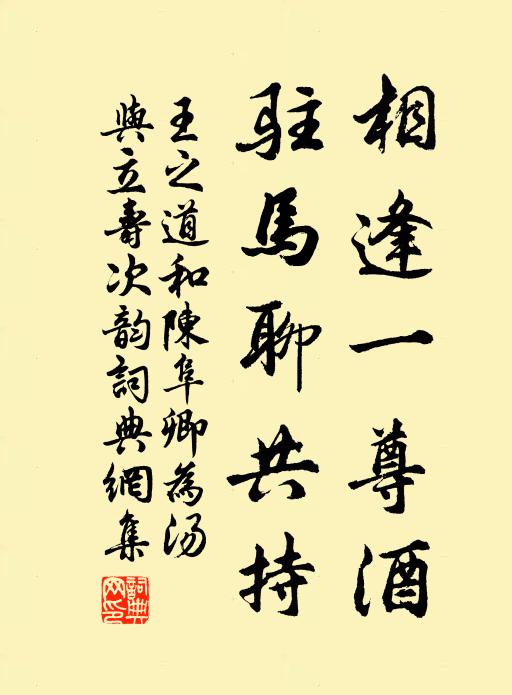 相逢一尊酒
駐馬聊共持
王之道和陳阜卿為湯
與立壽次韵詞典網集
詞典網印